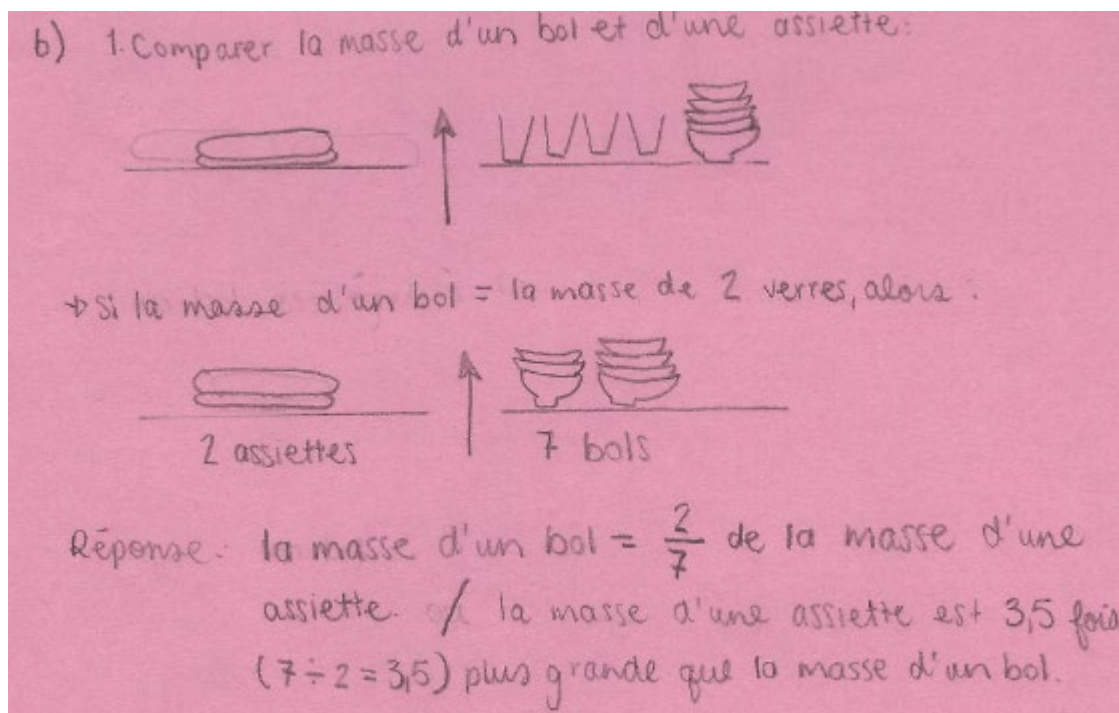 b) 1. Comparer la masse d'un bol et d'une assiette:
→ Si la masse d'un bol = la masse de 2 verres, alors :
2 assiettes 7 bols
Réponse: la masse d'un bol = 2/7 de la masse d'une
assiette. / la masse d'une assiette est 3,5 fois
(7 ÷ 2 = 3,5) plus grande que la masse d'un bol.